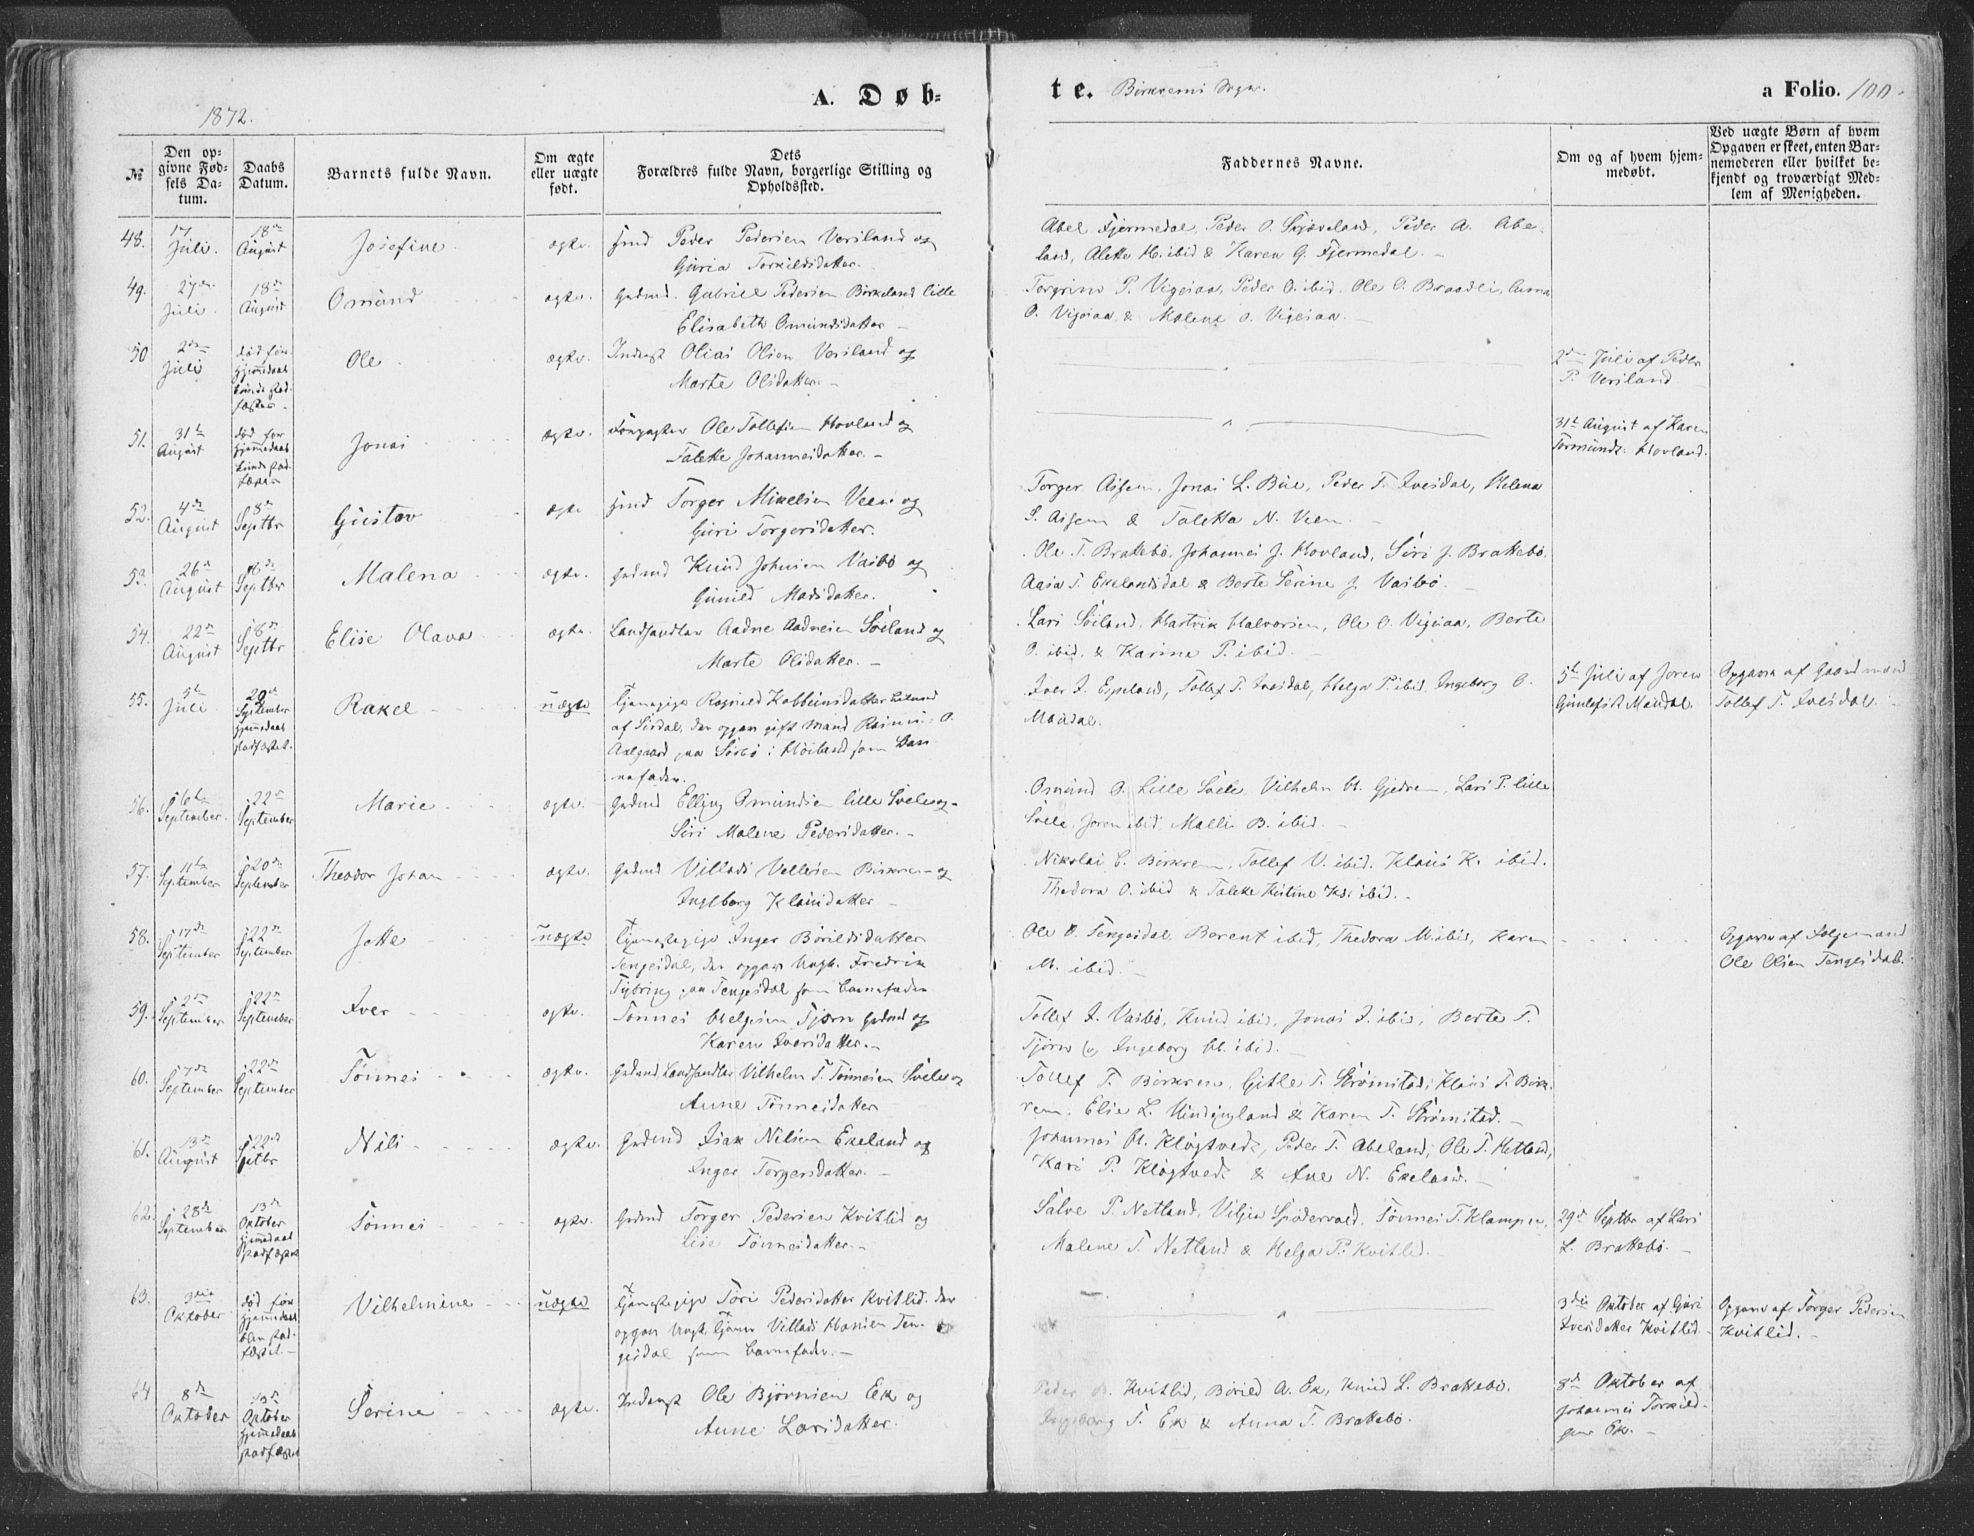 1872.
A. Døb-
te. Birkrems Sogn.
a Folio. 100.
№
Den op-
givne Fød-
sels Da-
tum.
Daabs
Datum.
Barnets fulde Navn.
Om ægte
eller uægte
født.
Dets
Forældres fulde Navn, borgerlige Stilling og
Opholdssted.
Faddernes Navne.
Om og af hvem hjem-
medøbt.
Ved uægte Børn af hvem
Opgaven er skeet, enten Bar-
nemoderen eller hvilket be-
kjendt og troværdigt Med-
lem af Menigheden.
48.
Juli.
18de
August
Josefine
ægte.
Peder Pedersen Versland og
Guria Torkildsdatter.
Abel Fjermedal, Peder O. Skjæveland, Peder A. Abe-
land, Alette H. ibid & Karen G. Fjermedal.
49.
27de
Juli.
18de
August
Omund
ægte.
Gbmd. Gabriel Pedersen Birkeland lille
Elisabeth Omundsdatter
Torgrim P. Vigesaa, Peder O. ibid, Ole O. Braadli, Anna
O. Vigesaa & Malene O. Vigesaa.
50
2den
Juli
død før
Ole
ægte.
Inderst Olias Olsen Versland og
Marte Olsdatter.
2den Juli af Peder
P. Versland
51.
31te
August
død før
Jonas
ægte.
Ole Tollefsen Hovland og
Talette Johannesdatter.
31te August af Karen
Tormunds. Hovland.
52.
4de
August
8de
Septbr
Gustav
ægte
Torger Mikelsen Veen og
Guri Torgersdatter.
Torger Aisen, Jonas L. Bue, Peder T. Ivesdal, Helena
S. Aisen & Taletta N. Veen.
53.
26de
August
8de
Septbr
Malena
ægte.
Gbmd Knud Johnsen Vasbø og
Gunild Madsdatter.
Ole T. Brattebø, Johannes J. Hovland, Siri J. Brattebø,
Aasa T. Ekelandsdal & Berte Serine J. Vasbø.
54.
22de
August
8de
Septbr
Elise Olava
ægte.
Landhandler Aadne Aadnesen Søiland og
Marte Olsdatter.
Lars Søiland, Hartvik Halvorsen, Ole O. Vigesaa, Berte
O. ibid. & Karine P. ibid.
55.
5te
Juli
September
Rakel
uægte
Tjenepige Ragnild
af Sirdal, der opgav gift Mand Rasmus O.
Aalgaard paa Sørbø i Høiland som Bar-
nefader.
Iver I. Espeland, Tollef T. Ivesdal, Helga P. ibid, Ingeborg O.
Maudal.
5te Juli af Joren
Gunlefsdt Maudal.
Opgaven af Gaardmand
Tollef T. Ivesdal.
56.
6te
September.
22de
September
Marie
ægte.
Gbmd Elling Omundsen lille Svele og
Siri Malene Pedersdatter.
Osmund O. Lille Svele, Vilhelm H. Gjedrem, Lars P. lille
Svele, Joren ibid, Malli B. ibid.
57.
11te
September
20de
September
Theodor Johan
ægte.
Gbmd Villads Vellesen Birkrem og
Ingeborg Klausdatter
Nikolai C. Birkrem, Tollef V. ibid, Klaus K. ibid.
Thedora O. ibid & Taleke Kistine Ks. ibid.
58.
17de
September
22de
September
Jette
uægte
Tjenestepige Inger Børildsdatter
Tengesdal, der opgav Ungk. Fredrik
Tybring paa Tengesdal som Barnefader
Ole O. Tengesdal, Berent ibid, Thedora M. ibid, Karen
M. ibid.
Opgaven af Føljemand
Ole Olsen Tengesdal.
59.
2den
September
22de
September
Iver
ægte.
Tønnes Helgesen Tjørn Gbmd og
Karen Iversdatter.
Tollef I. Vasbø, Knud ibid, Jonas I. ibid, Berte T.
Tjørn og Ingeborg H. ibid.
60.
7de
September
22de
September
Tønnes
ægte.
Gbmd Landhandler Vilhelm T. Tønnesen Svele og
Anne Tønnesdatter
Tollef T. Birkrem, Gitle T. Strømstad, Klaus T. Birk-
rem, Elie L. & Karen T. Strømstad.
61.
13de
August
22de
Septbr
Nili
ægte.
Gbmd Isak Nilsen Ekeland og
Inger Torgersdatter.
Johannes H. Kløgtvedt, Peder T. Abeland, Ole T. Hetland,
Kari P. Kløgtvedt & Ane N. Ekeland.
62.
28de
September
13de
Oktober
Tønnes
ægte.
Gbmd Torger Pedersen Kvitlid og
Lise Tønnesdatter.
Salve P. Netland, Vilja Spødervold, Tønnes T. Klampen,
Malene T. Netland & Helga P. Kvitlid.
29de Septbr af Lars
L. Brattebø.
63.
3die
Oktober
død før
Vilhelmine
uægte
Tjenestepige Tori Pedersdatter Kvitlid, der
opgav Ungk. Tjener Villads Hansen Ten-
gesdal som Barnefader.
3die Oktober af Guri
Iversdatter Kvitlid.
Opgaven af Torger Pedersen
Kvitlid.
64
8de
Oktober
13de
Oktober
Serine
ægte.
Inderst Ole Bjørnsen Eek og
Anne Larsdatter.
Peder B. Kvitlid, Børild A. Ek, Knud L. Brattebø.
Ingeborg T. Ek & Anna T. Brattebø.
8de Oktober af
Johannes Torkild-
sen Ek.